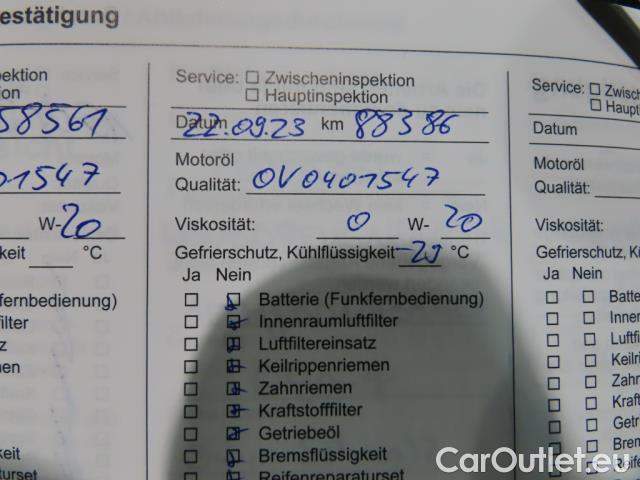 estätigung
pektion
ion
58561
01547
W- 20
keit °C
fernbedienung)
filter
z
men
keit
raturset
Service: Zwischeninspektion
Hauptinspektion
Datum 22.09.23 km 88386
Motoröl
Qualität: OV0401547
Viskosität: 0 W- 20
Gefrierschutz, Kühlflüssigkeit -29 °C
Ja Nein
Batterie (Funkfernbedienung)
Innenraumluftfilter
Luftfiltereinsatz
Keilrippenriemen
Zahnriemen
Kraftstofffilter
Getriebeöl
Bremsflüssigkeit
Reifenreparaturset
Service: Zwisch
Haupti
Datum
Motoröl
Qualität:
Viskosität:
Gefrierschutz, Kü
Ja Nein
Batte
Inne
Luftfi
Keilri
Zah
Kraft
Getr
Bre
Reife
CarOutlet.eu